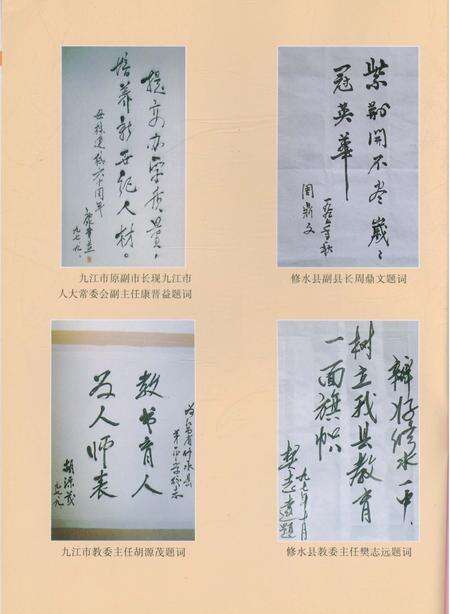 提高办学质量，
培养新世纪人材。
母校建校六十周年
康晋益
九七.九.
九江市原副市长现九江市
人大常委会副主任康晋益题词
紫荆開不尽歲〻
冠英華
周鼎文
修水县副县长周鼎文题词
教书育人
为人师表
胡源茂
九江市教委主任胡源茂题词
辦好修水一中
树立我县教育
一面旗帜
九七年十月
樊志远题
修水县教委主任樊志远题词